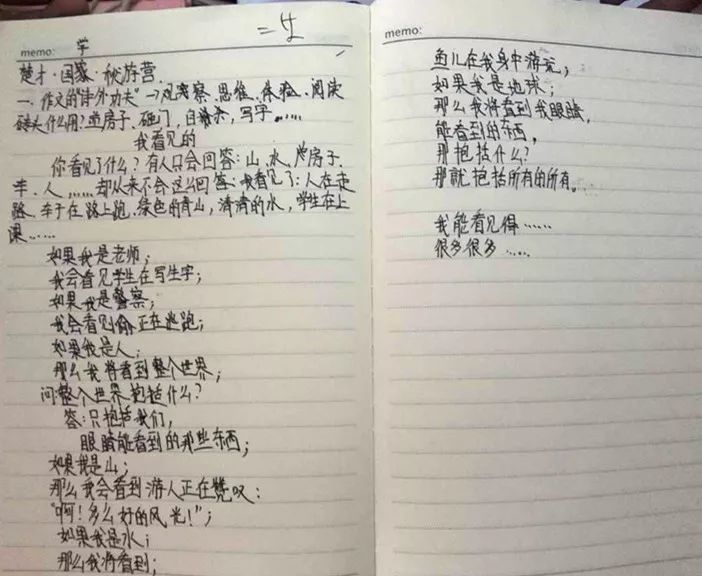 memo:
学
楚才·国际·秋游营
一、作文的"诗外功夫"→观察、思维、体验、阅读
砖头什么用?造房子、砸门、自杀、写字……
我看见的
你看见了什么?有人只会回答:山、水、房子、
车、人……却从来不会这么回答:我看见了:人在走
路、车子在路上跑、绿色的青山,清清的水,学生在上
课……
如果我是老师;
我会看见学生在写生字;
如果我是警察;
我会看见偷正在逃跑;
如果我是人;
那么我将看到整个世界;
问:整个世界抱括什么?
答:只抱括我们,
眼睛能看到的那些东西;
如果我是山;
那么我会看到游人正在赞叹:
"啊!多么好的风光!";
如果我是水;
那么我将看到;
memo:
鱼儿在我身中游玩;
如果我是地球;
那么我将看到我眼睛,
能看到的东西,
那抱括什么?
那就抱括所有的所有。
我能看见得……
很多很多……